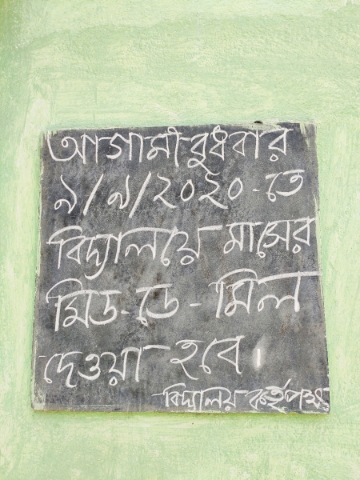 আগামী বুধবার
৯/৯/২০২০-তে
বিদ্যালয়ে মাসের
মিড-ডে-মিল
দেওয়া হবে।
বিদ্যালয় কর্তৃপক্ষ